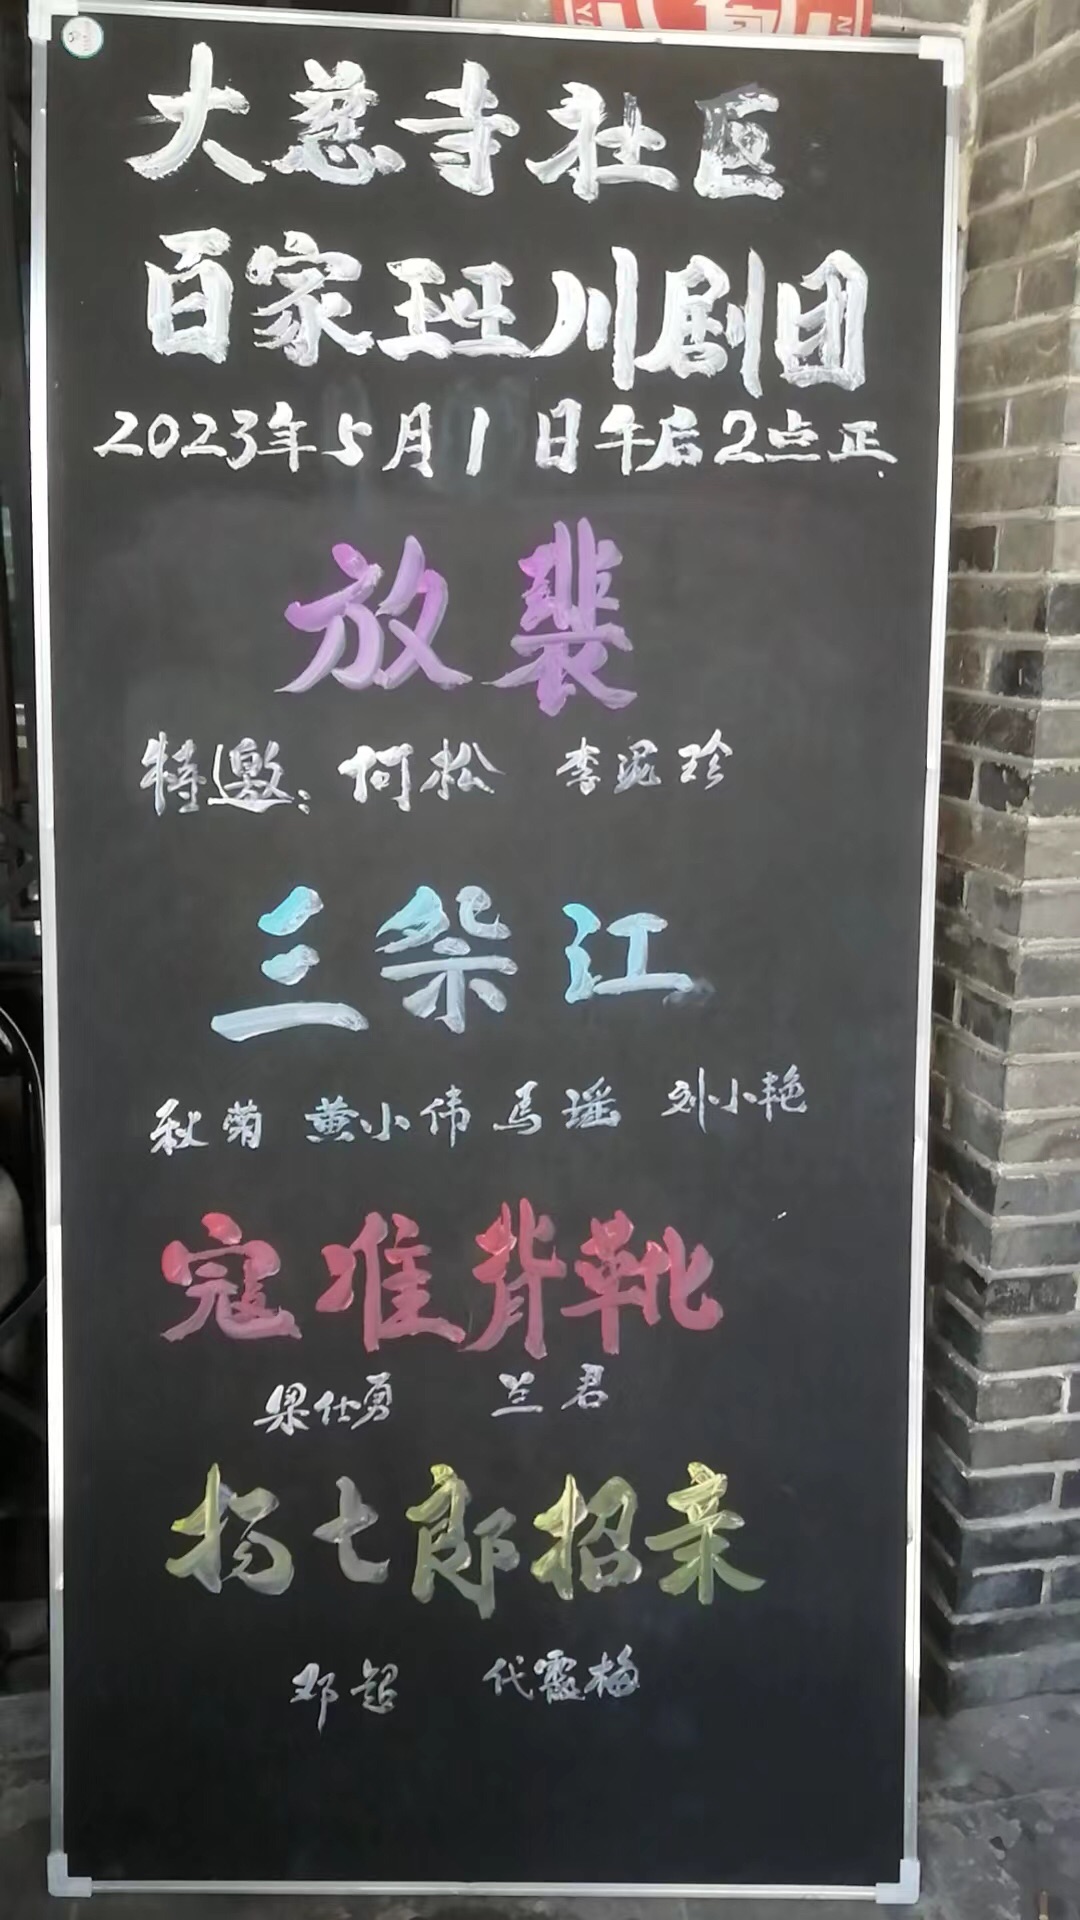 大慈寺社区
百家班川剧团
2023年5月1日午后2点正
放裴
特邀：何松 李泥珍
三祭江
秋菊 黄小伟 马瑶 刘小艳
寇准背靴
梁仕勇 兰君
扬七郎招亲
邓超 代霞梅